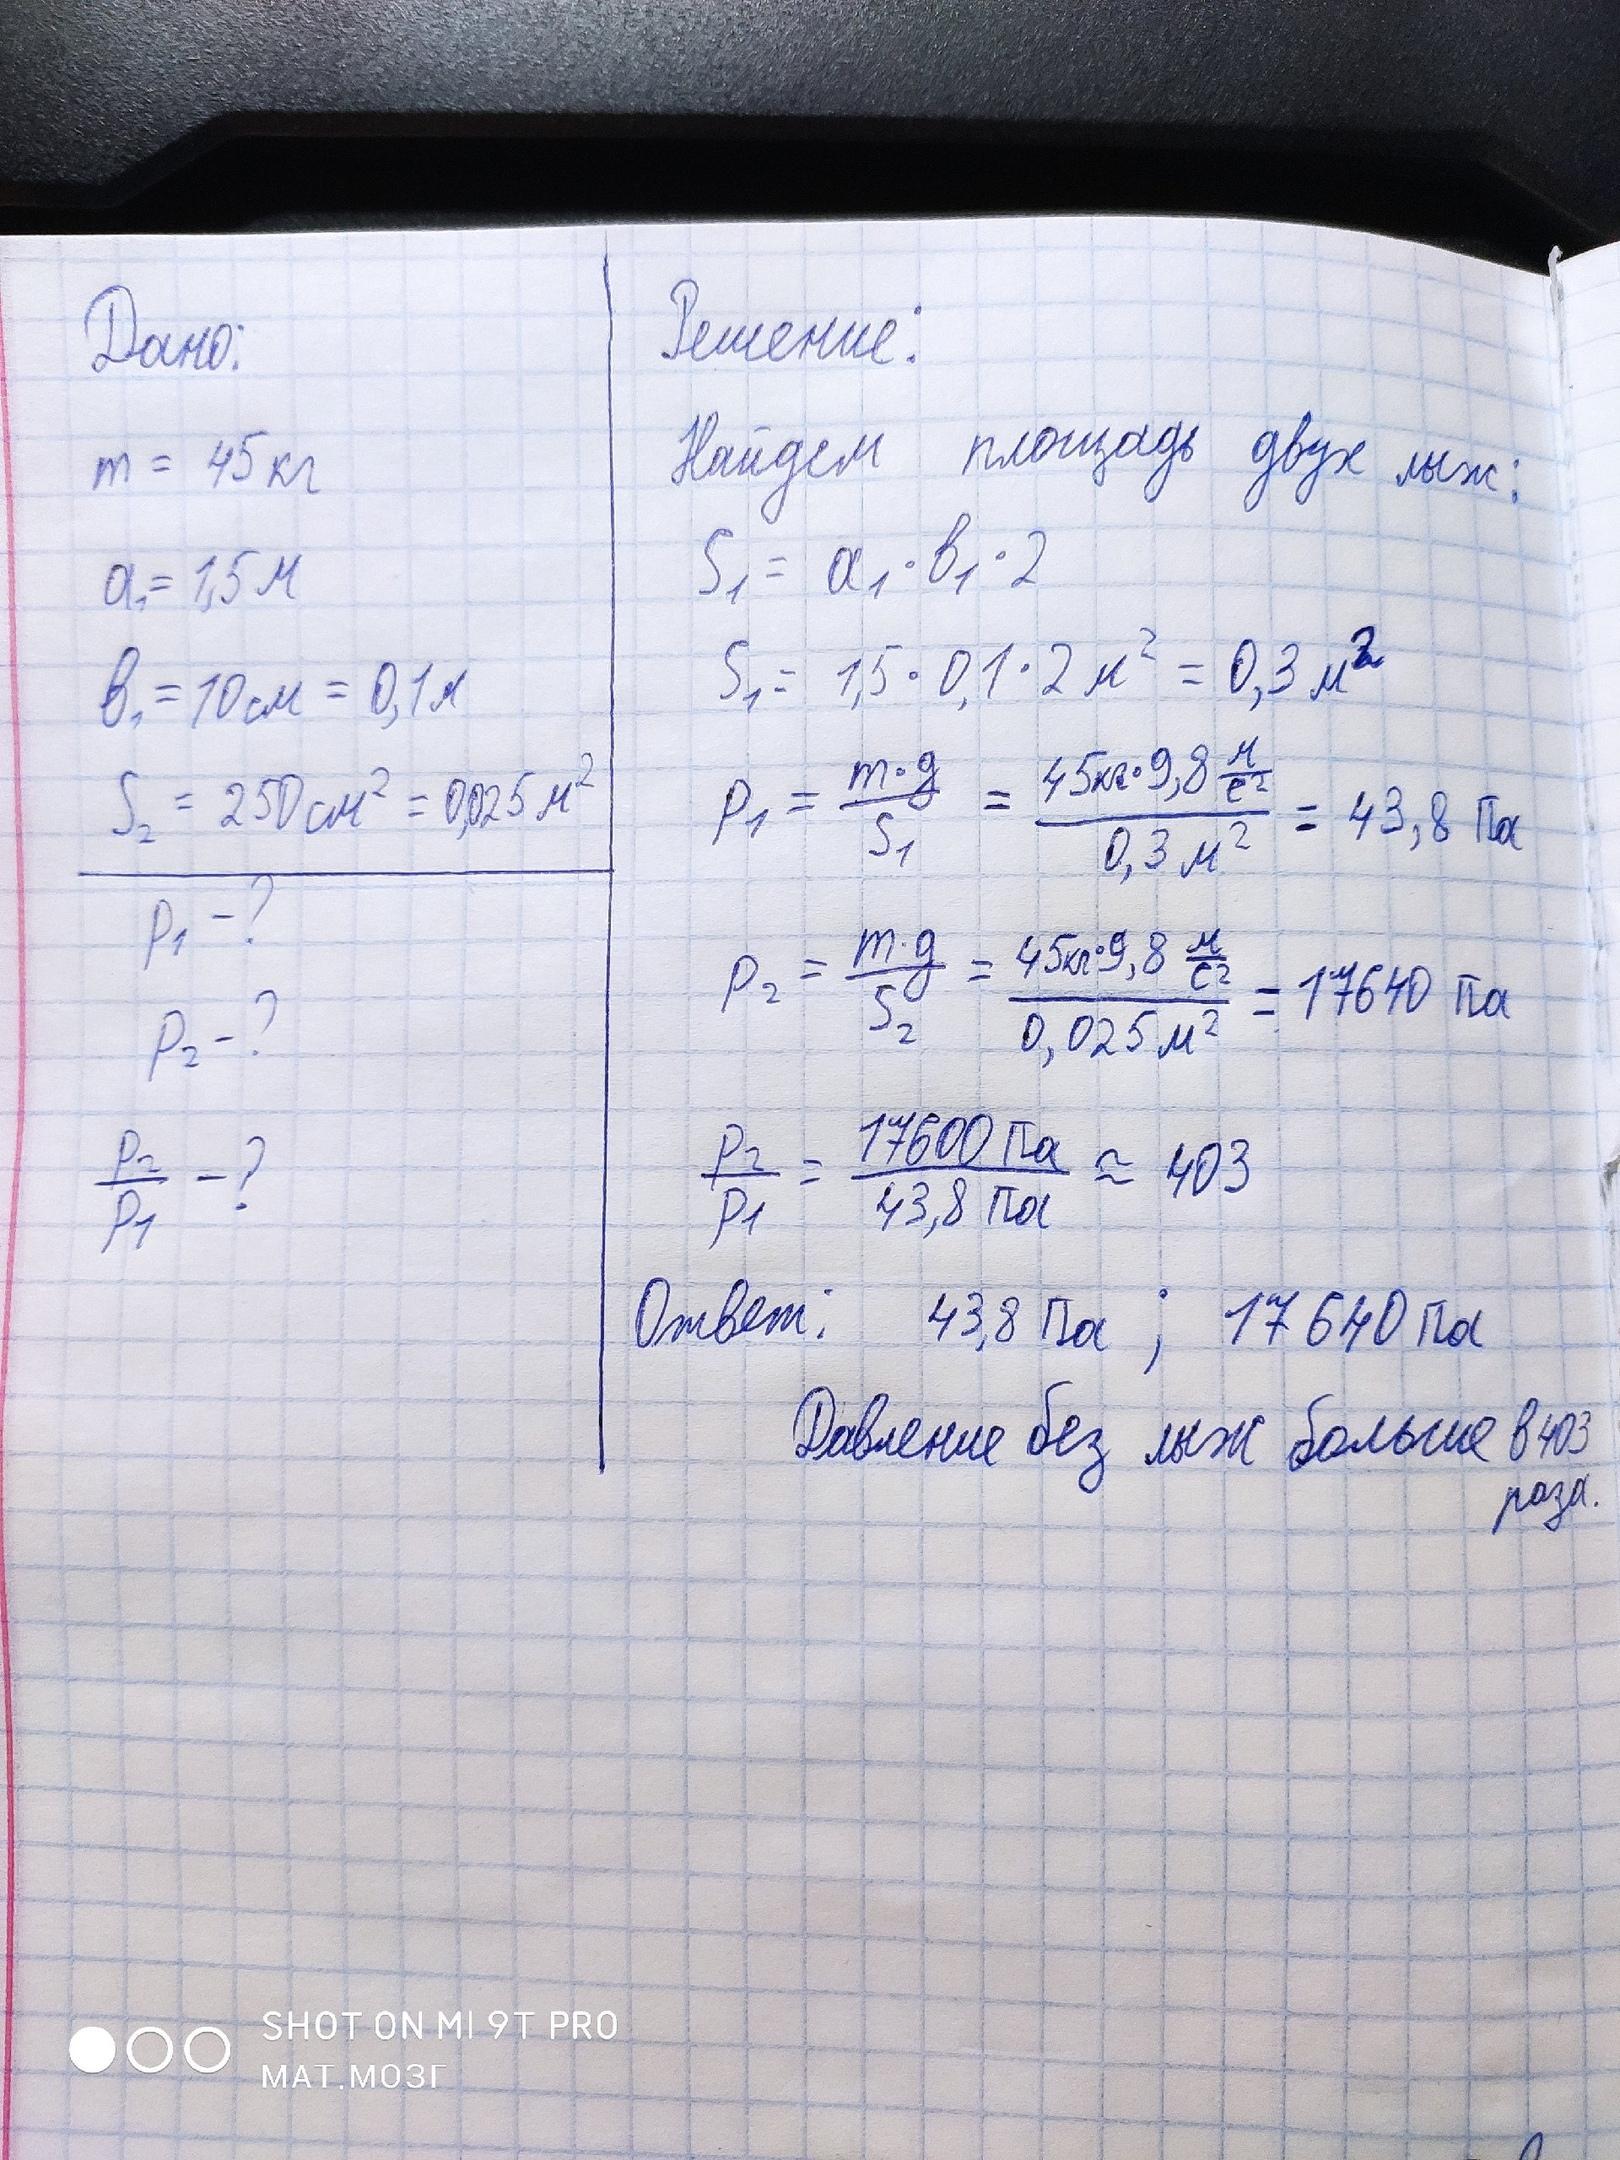 Дано:
m = 45 кг
a₁ = 1,5 м
b₁ = 10 см = 0,1 м
S₂ = 250 см² = 0,025 м²
p₁ - ?
p₂ - ?
p₂/p₁ - ?
Решение:
Найдем площадь двух лыж:
S₁ = a₁ · b₁ · 2
S₁ = 1,5 · 0,1 · 2 м² = 0,3 м²
p₁ = m·g/S₁ = 45кг·9,8 м/с²/0,3 м² = 43,8 Па
p₂ = m·g/S₂ = 45кг·9,8 м/с²/0,025 м² = 17640 Па
p₂/p₁ = 17600 Па/43,8 Па ≈ 403
Ответ: 43,8 Па ; 17640 Па
Давление без лыж больше в 403
раза.
SHOT ON MI 9T PRO
МАТ.МОЗГ